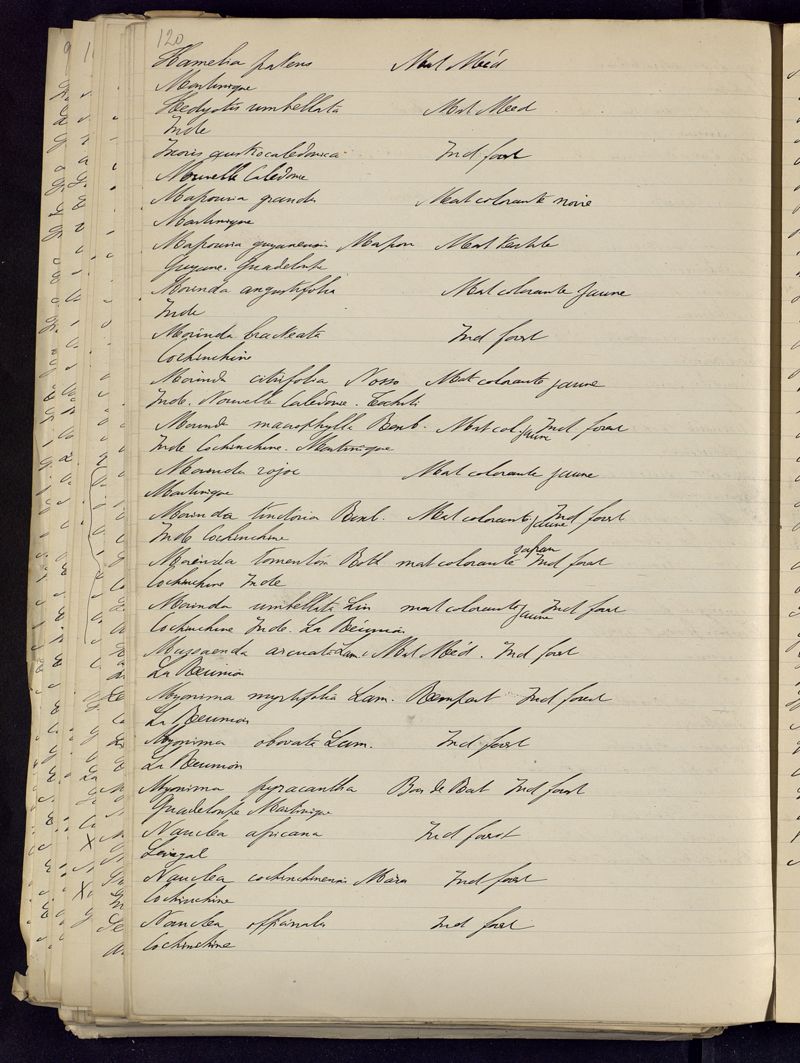 120
Hamelia patens Mat Méd
Martinique
Hedyotis umbellata Mat Méd
Inde
Ixoris austrocaledonica Ind forst
Nouvelle Calédonie
Mapouria grandis Mat colorante noire
Martinique
Mapouria guyanensis Mapou Mat textile
Guyane. Guadeloupe
Morinda angustifolia Mat colorante jaune
Inde
Morinda bracteata Ind forst
Cochinchine
Morinda citrifolia Nosso Mat colorante jaune
Inde. Nouvelle Calédonie.
Morinda macrophylla Mat col jaune Ind forest
Inde Cochinchine. Martinique
Morinda rojoc Mat colorante jaune
Martinique
Morinda tinctoria Roxb. Mat colorante jaune Ind forst
Inde Cochinchine
Morinda tomentosa Roth mat colorante safran Ind forst
Cochinchine Inde
Morinda umbellata Lin mat colorante jaune Ind forst
Cochinchine Inde. La Réunion
Mussaenda arcuata Lam. Mat Méd. Ind forst
La Réunion
Myonima myrtifolia Lam. Rempart Ind forest
La Réunion
Myonima obovata Lam. Ind forst
La Réunion
Myonima pyracantha Bois de Rat Ind forst
Guadeloupe Martinique
Nauclea africana Ind forst
Sénégal
Nauclea cochinchinensis Ind forst
Cochinchine
Nauclea officinalis Ind forst
Cochinchine